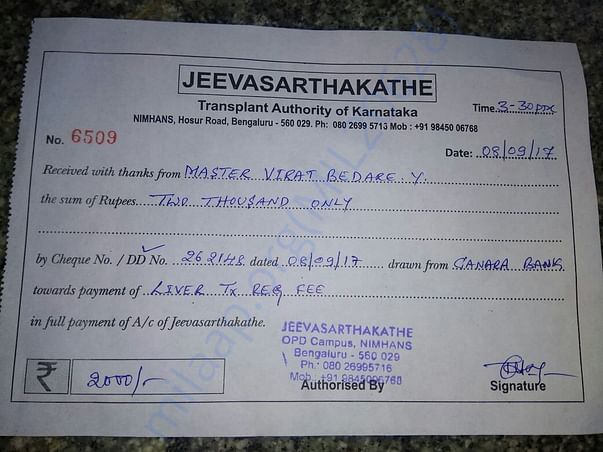 JEEVASARTHAKATHE
Transplant Authority of Karnataka
Time 3-30pm
NIMHANS, Hosur Road, Bengaluru - 560 029. Ph: 080 2699 5713 Mob : +91 98450 06768
No. 6509
Date: 08/09/17
Received with thanks from MASTER VIRAT BEDARE. Y.
the sum of Rupees TWO THOUSAND ONLY
by Cheque No. / DD No. 262148 dated 08/09/17 drawn from CANARA BANK
towards payment of LIVER Tx REG FEE
in full payment of A/c of Jeevasarthakathe.
JEEVASARTHAKATHE
OPD Campus, NIMHANS
Bengaluru - 560 029
Ph.: 080 26995716
Mob : +91 9845006768
₹ 2000/-
Authorised By
Signature
milaap.org